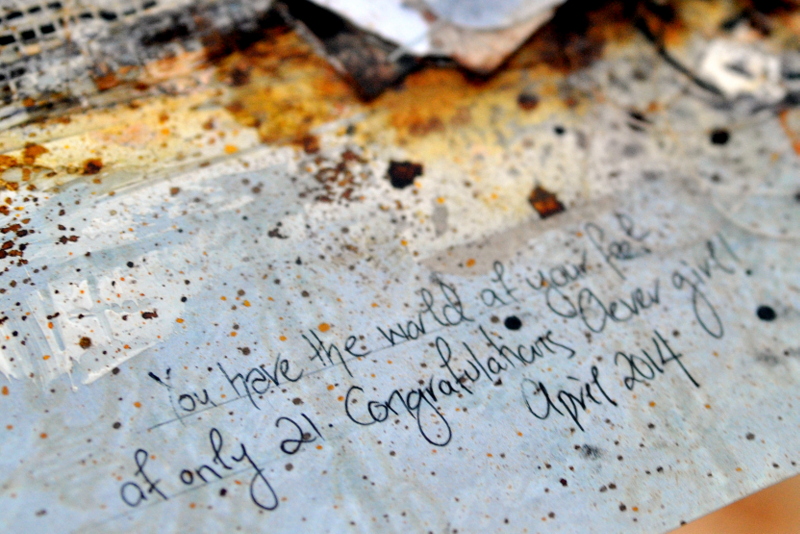 You have the world at your feet
at only 21. Congratulations Clever girl!
April 2014